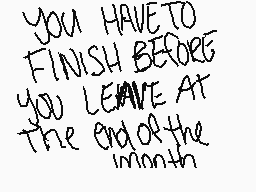 YOU HAVE TO
FINISH BEFORE
YOU LEAVE AT
The end of the
month